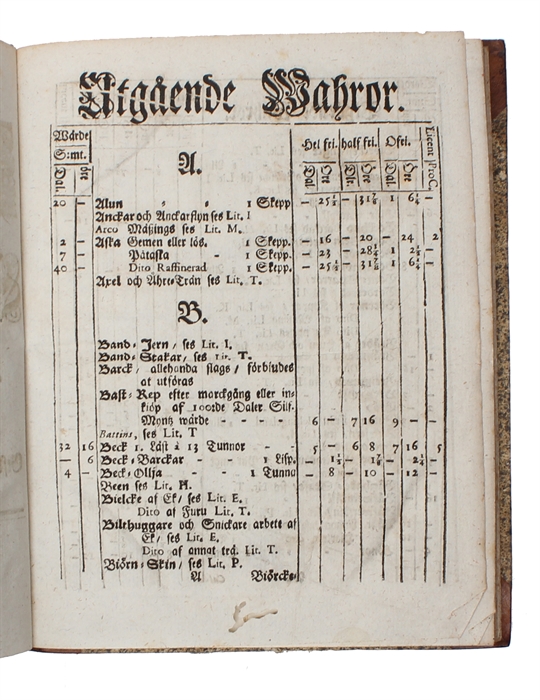 Utgående Wahror.
Wärde S:mt. Hel fri. half fri. Ofri. Licent
Dal. öre A. Dal. Öre Dlr. Öre Dal. Öre ProC.
20 – Alun 1 Skepp – 25 – 31 1 6
Anckar och Anckarstyn ses Lit. I
Arco Mäßings ses Lit. M.
2 – Aska Gemen eller lös. 1 Skepp. – 16 – 20 – 24 2
7 – Påtaska 1 Skepp. – 23 – 28 1 2
40 – Dito Raffinerad 1 Skepp. – 25 – 31 1 6
Axel och Åhre-Trän ses Lit. T.
B.
Band-Jern / ses Lit. I.
Band-Stakar / ses Lit. T.
Barck / allehanda slags / förbiudes
at utföras
Bast-Rep efter marckgång eller in-
kiöp af 100rde Daler Silf-
Myntz wärde - - - - - 6 – 7 16 9 –
Battins, ses Lit. T
32 16 Beck 1. Läst à 13 Tunnor - - 5 – 6 8 7 16 5
– 6 Beck-Barckar - 1 Lisp. – 1 – 1 – 2
4 – Beck-Ollja - - 1 Tunna – 8 – 10 – 12 –
Been ses Lit. H.
Bielcke af Ek / ses Lit. E.
Dito af Furu Lit. T.
Bilthuggare och Snickare arbete af
Ek / ses Lit. E.
Dito af annatträ. Lit. T.
Biörn-Skin / ses Lit. P.
A Biörcke-